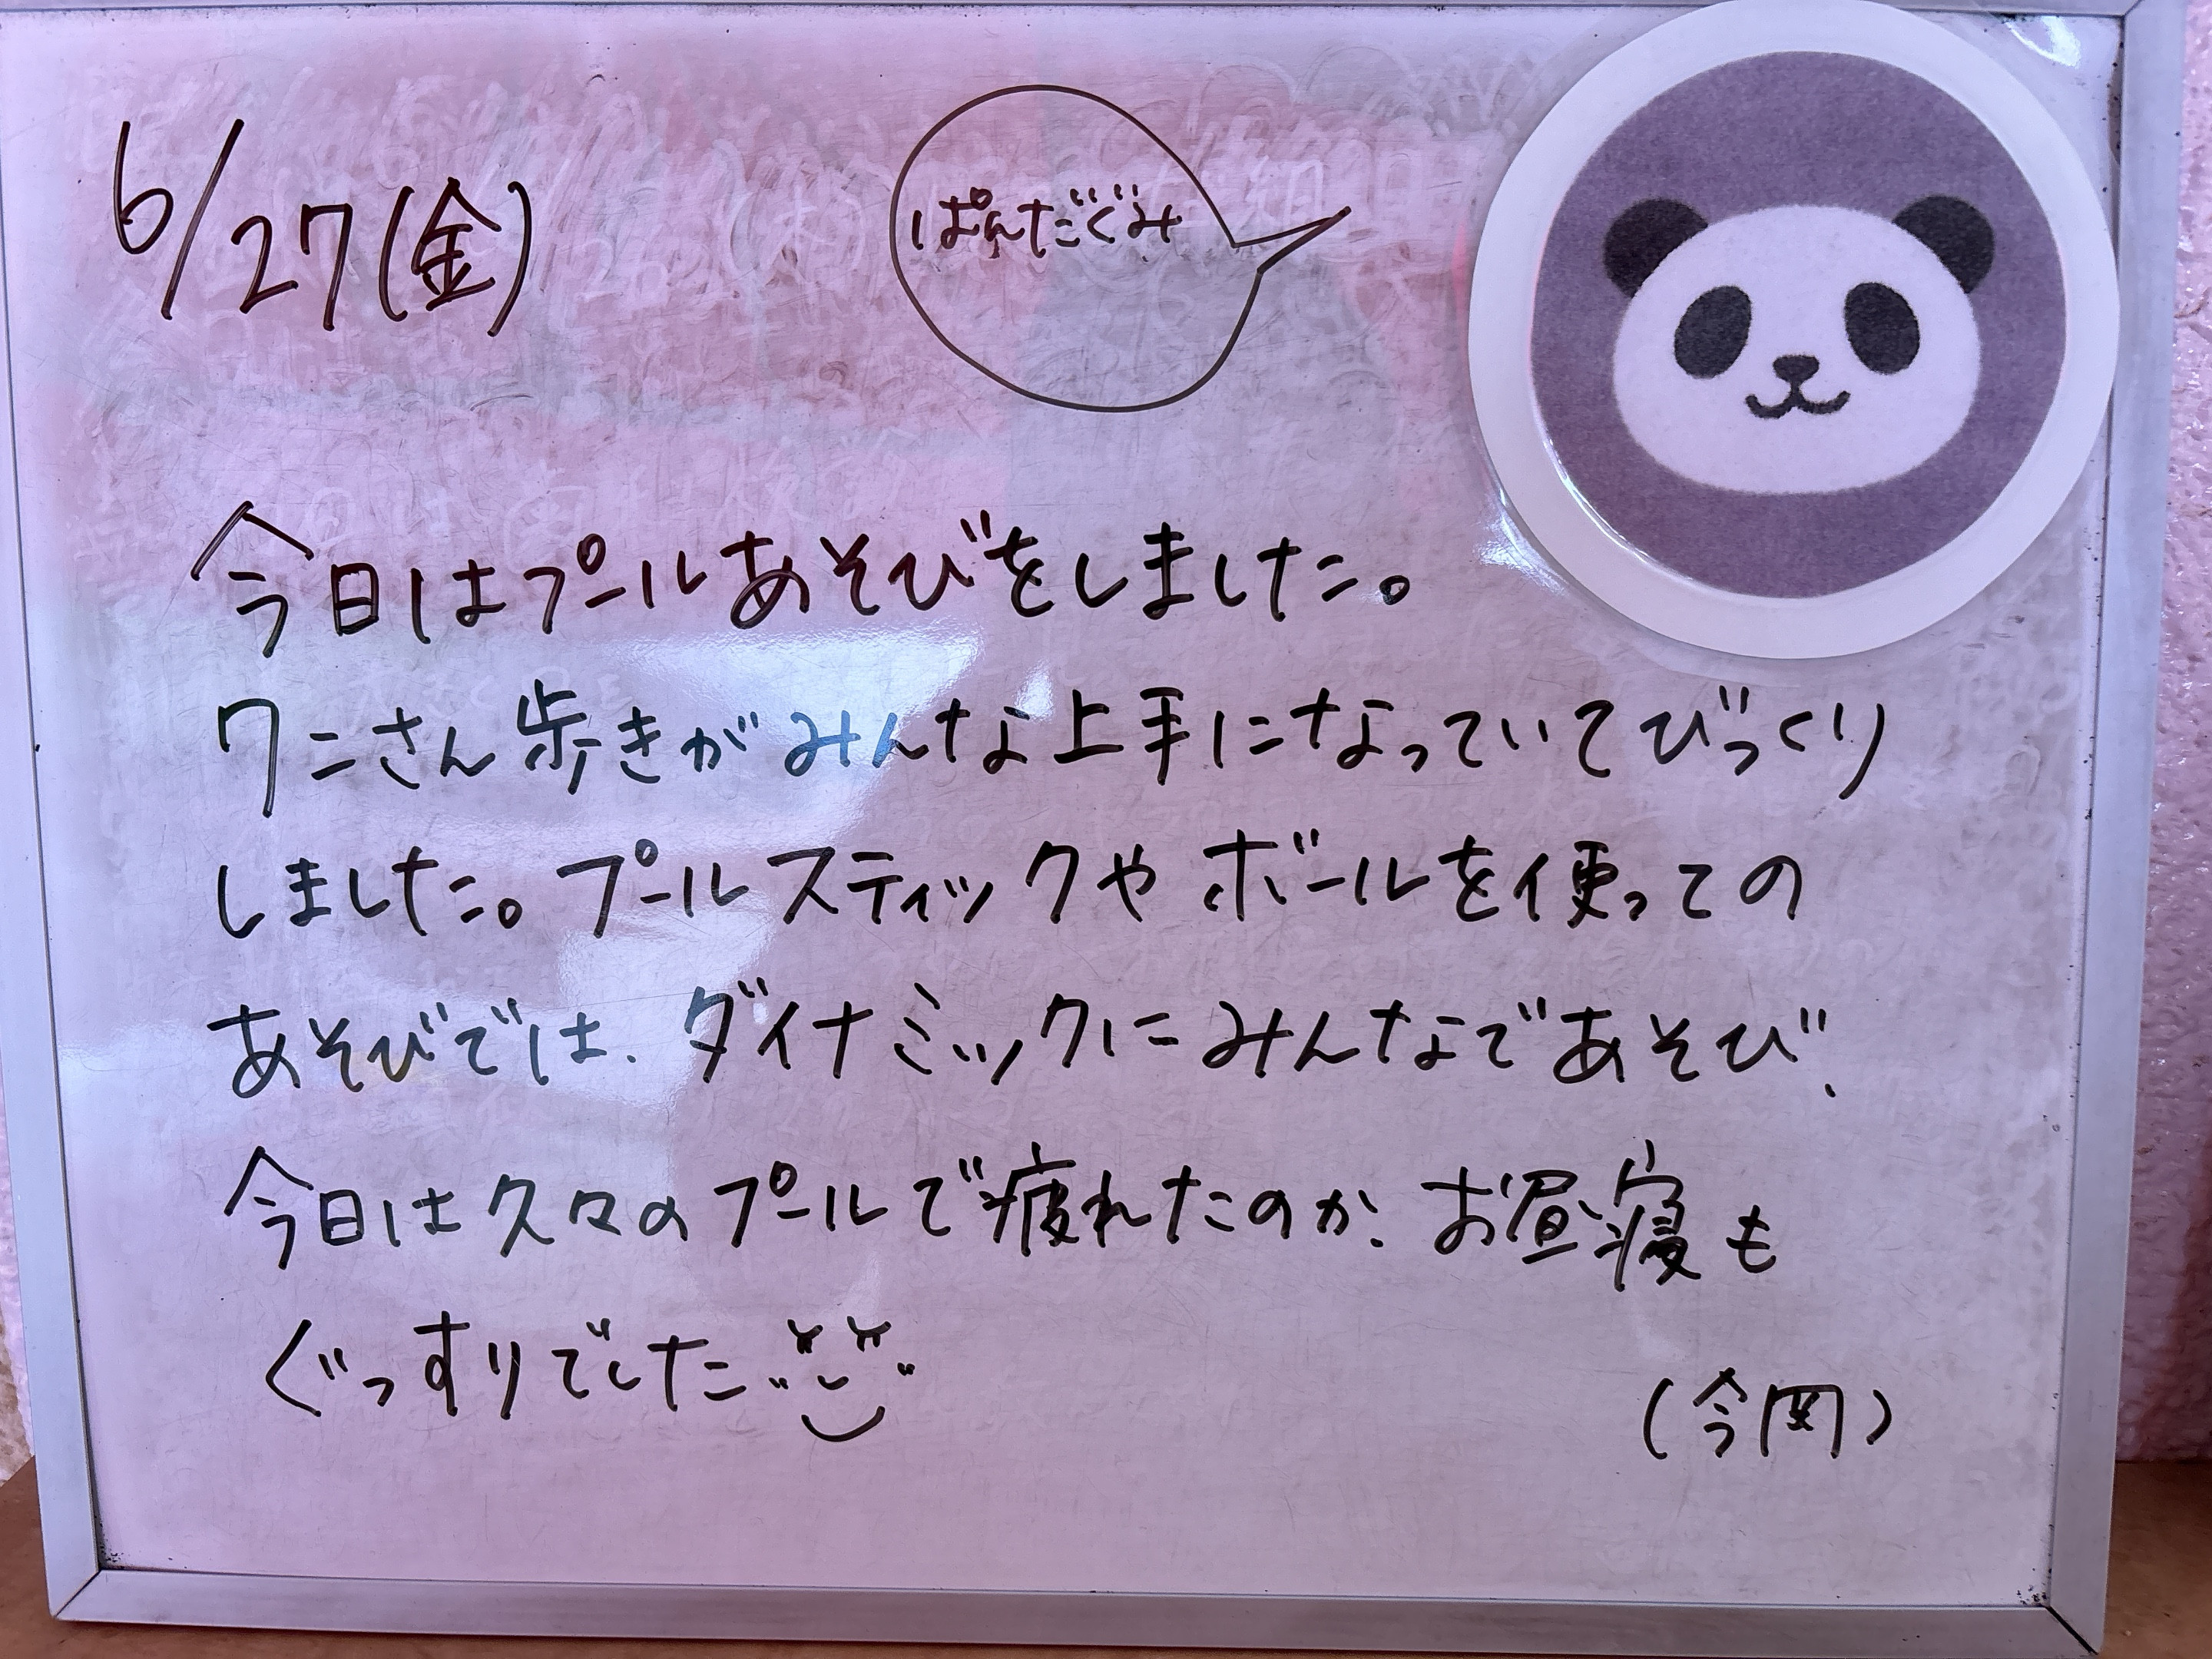 6/27(金)
ぱんだぐみ
今日はプールあそびをしました。
ワニさん歩きがみんな上手になっていてびっくり
しました。プールスティックやボールを使っての
あそびでは、ダイナミックにみんなであそび、
今日は久々のプールで疲れたのか、お昼寝も
ぐっすりでした
(今岡)